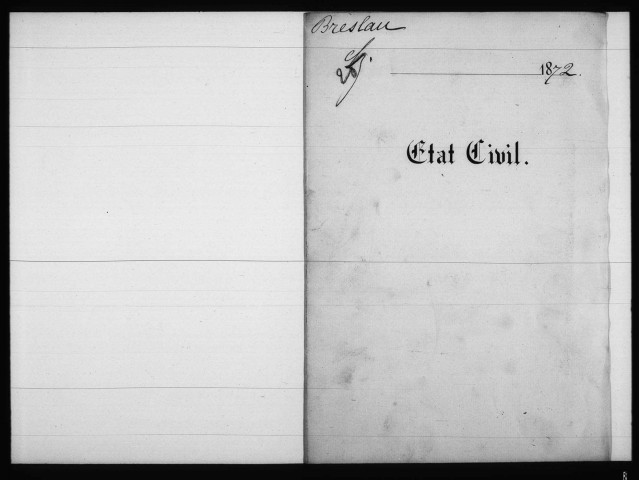 Breslau
1872.
Etat Civil.